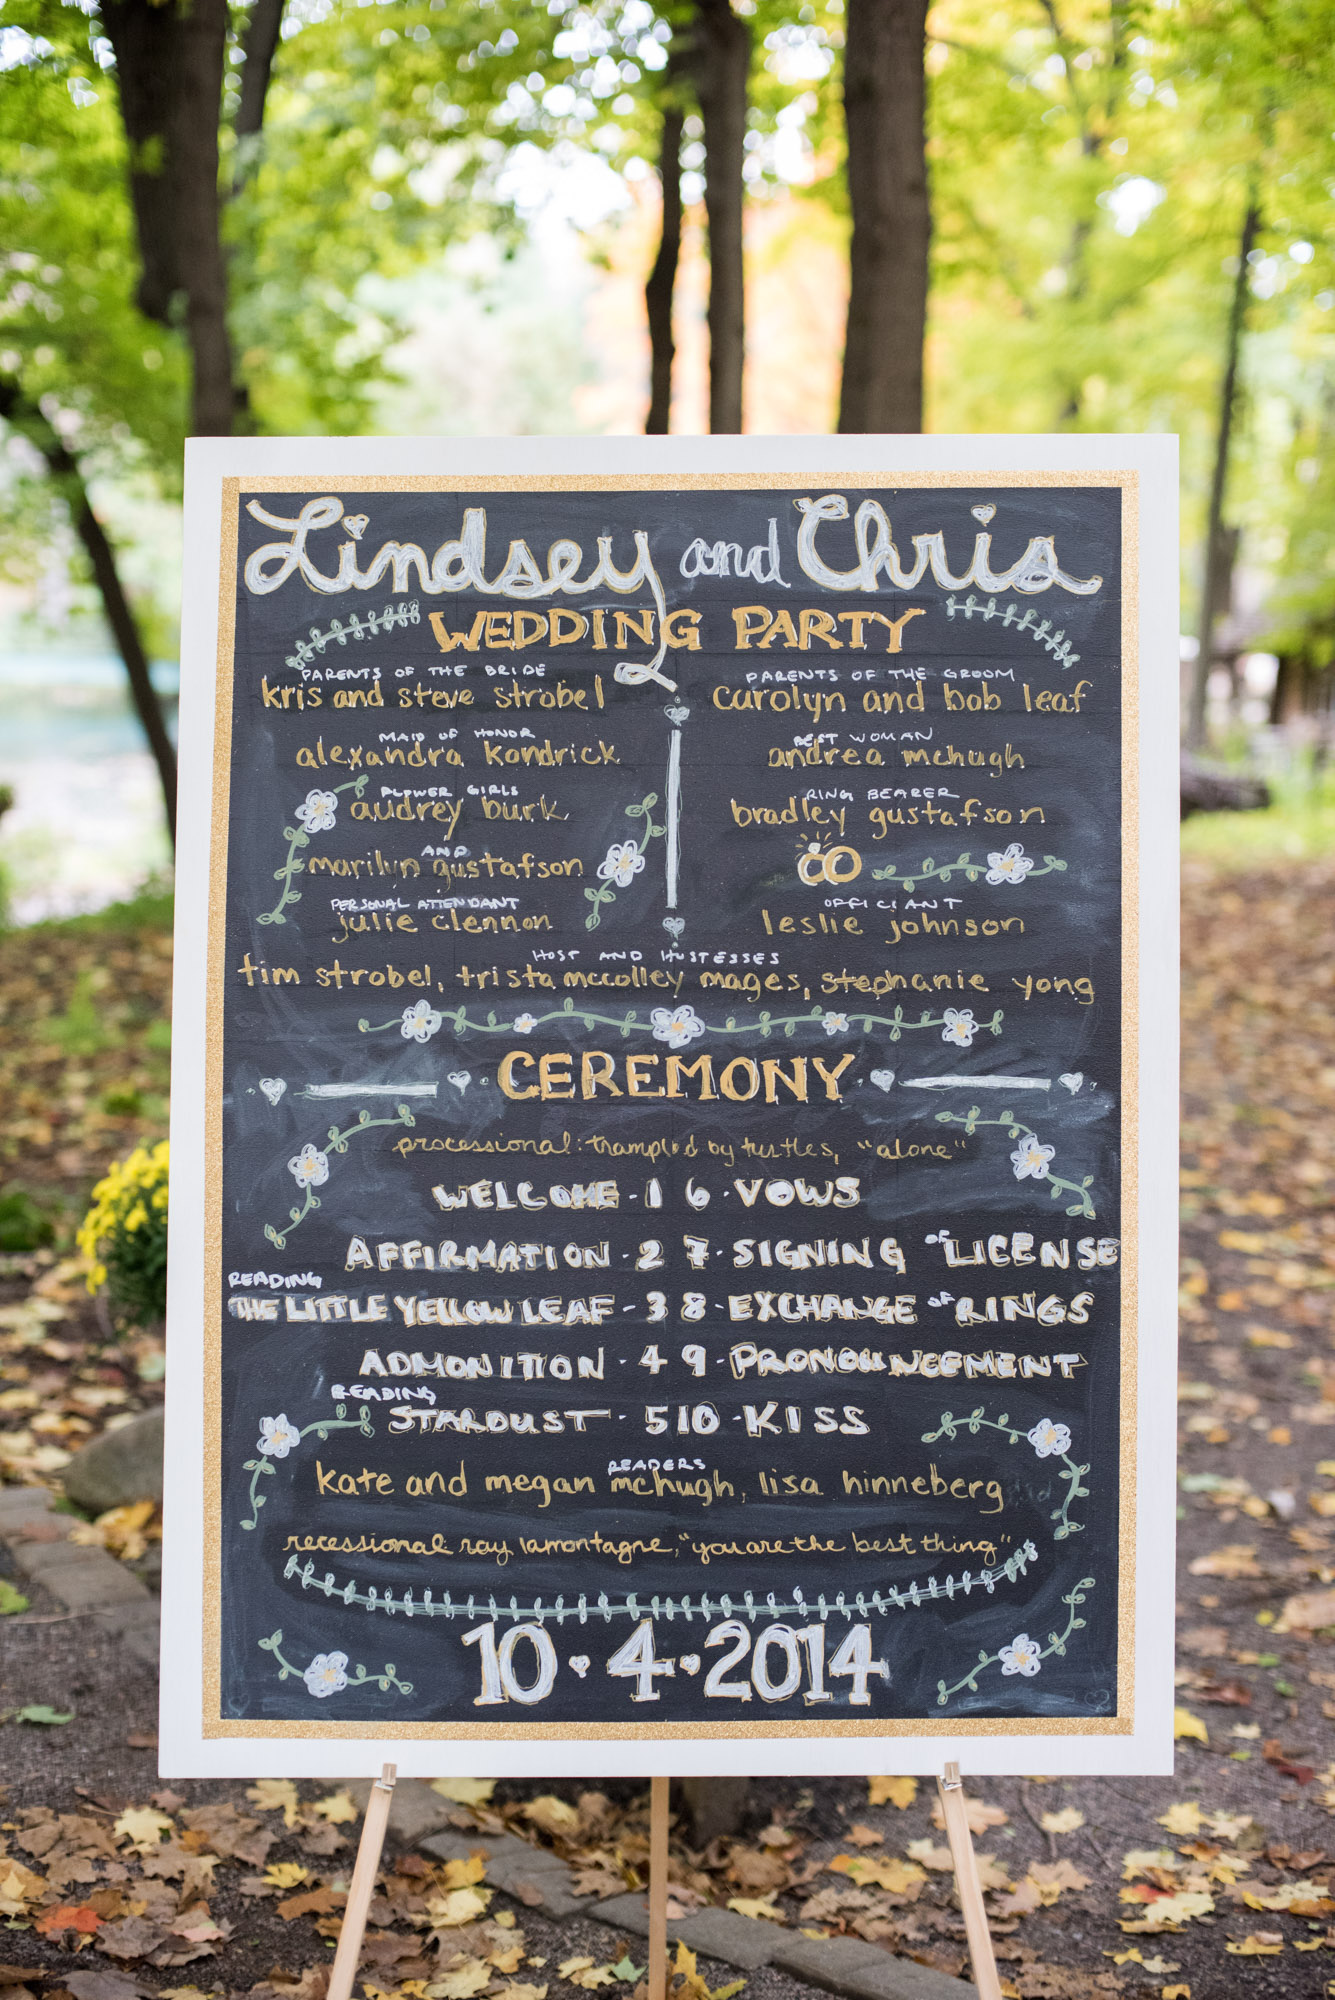 Lindsey and Chris
WEDDING PARTY
PARENTS OF THE BRIDE
kris and steve strobel
MAID OF HONOR
alexandra kondrick
FLOWER GIRLS
audrey burk
AND
marilyn gustafson
PERSONAL ATTENDANT
julie clennon
PARENTS OF THE GROOM
carolyn and bob leaf
BEST WOMAN
andrea mchugh
RING BEARER
bradley gustafson
OFFICIANT
leslie johnson
HOST AND HOSTESSES
tim strobel, trista mccolley mages, stephanie yong
CEREMONY
processional: trampled by turtles, "alone"
WELCOME · 1 6 · VOWS
AFFIRMATION · 2 7 · SIGNING OF LICENSE
READING
THE LITTLE YELLOW LEAF - 3 8 - EXCHANGE OF RINGS
ADMONITION · 4 9 · PRONOUNCEMENT
READING
STARDUST · 5 10 · KISS
READERS
kate and megan mchugh, lisa hinneberg
recessional: ray lamontagne, "you are the best thing"
10 · 4 · 2014